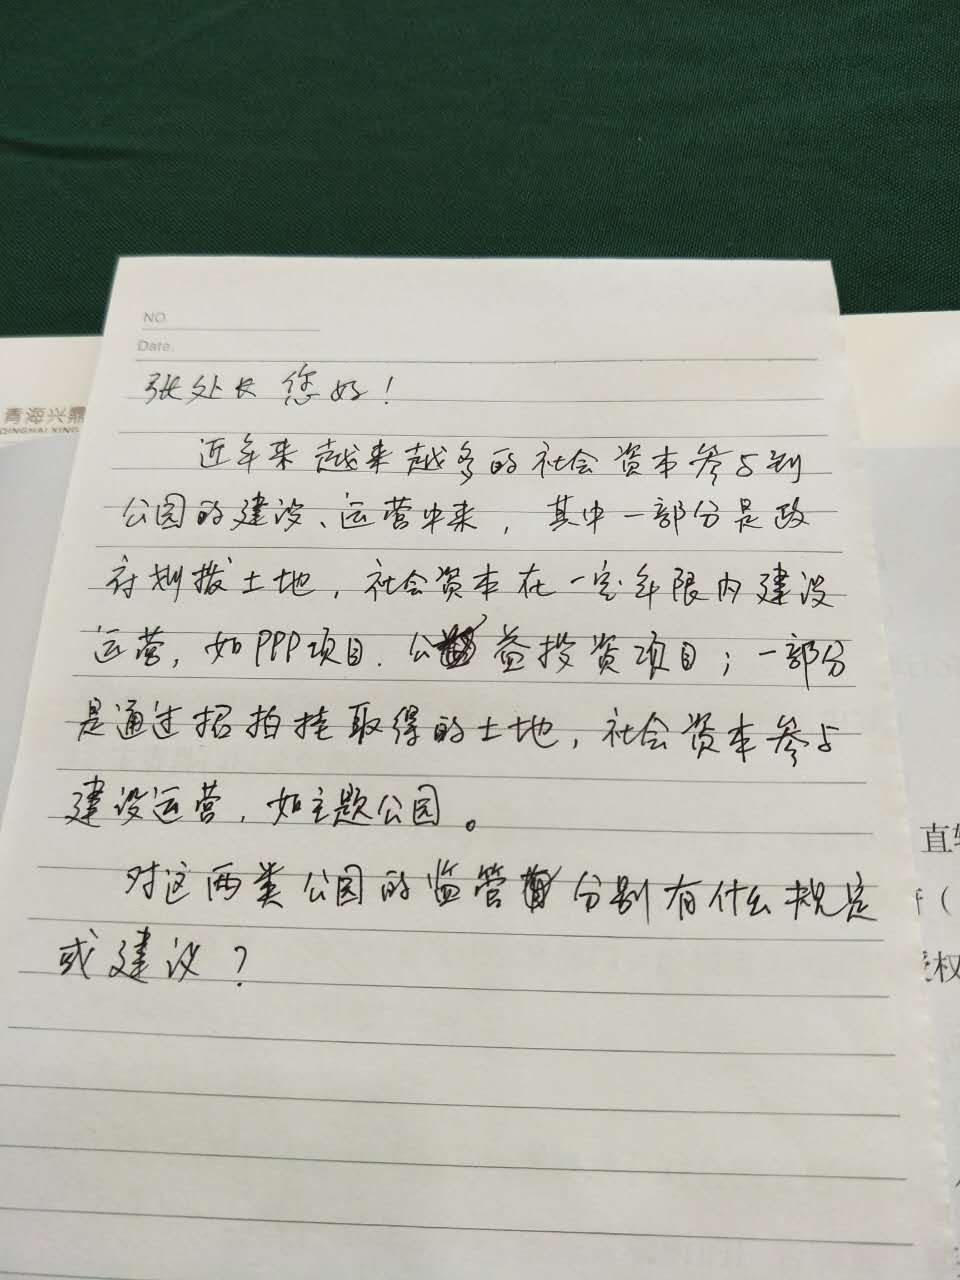 NO
Date
青海兴鼎
QINGHAI XING
张处长 您好！
近年来越来越多的社会资本参与到
公园的建设、运营中来，其中一部分是政
府划拨土地，社会资本在一定年限内建设
运营，如PPP项目.公益投资项目；一部分
是通过招拍挂取得的土地，社会资本参与
建设运营，如主题公园。
对这两类公园的监管分别有什么规定
或建议？
直
权